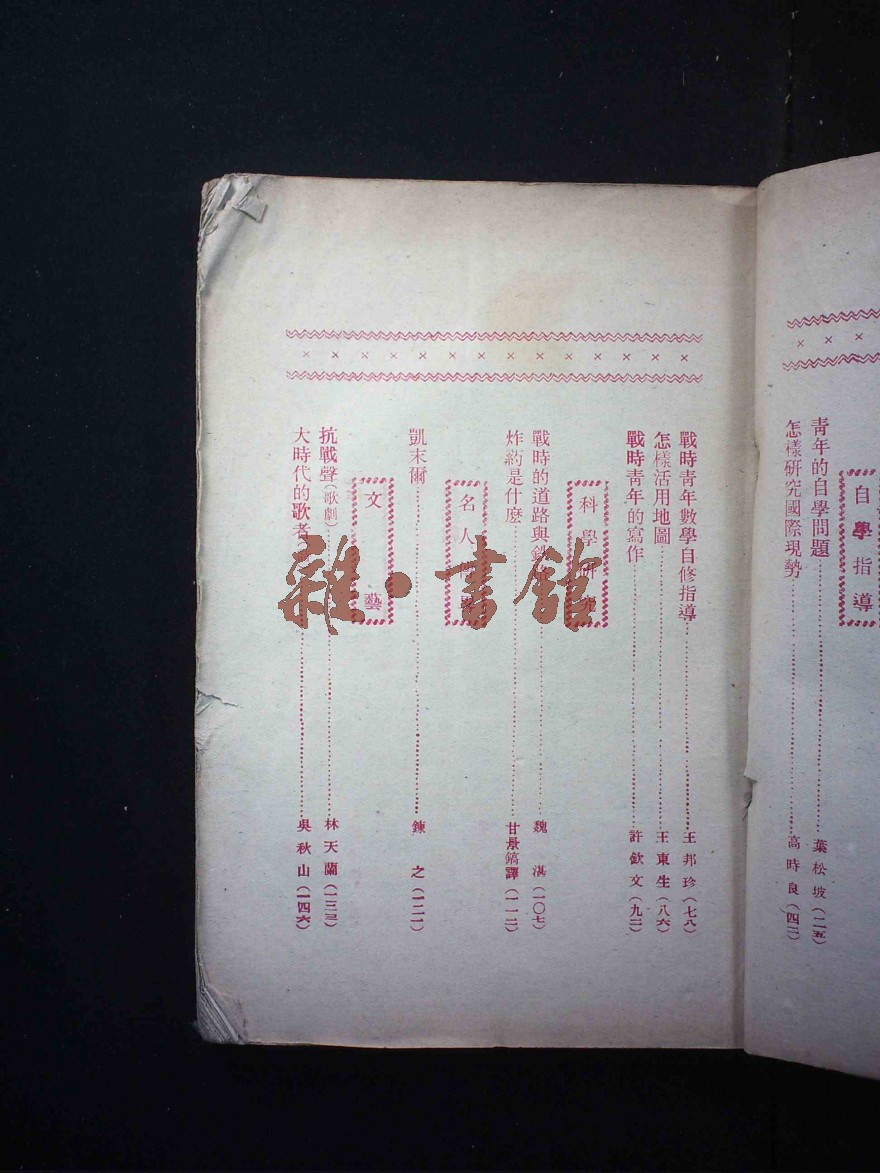 自學指導
青年的自學問題……葉松坡(二五)
怎樣研究國際現勢……高時良(四二)
戰時青年數學自修指導……王邦珍(七八)
怎樣活用地圖……王東生(八六)
戰時青年的寫作……許欽文(九二)
科學研究
戰時的道路與……魏湛(一〇七)
炸約是什麽……甘景鎬譯(一一二)
名人
凱末爾……鍊之(一二一)
文藝
抗戰聲(歌劇)……林天蘭(一三三)
大時代的歌者……吳秋山(一四六)
雜·書館